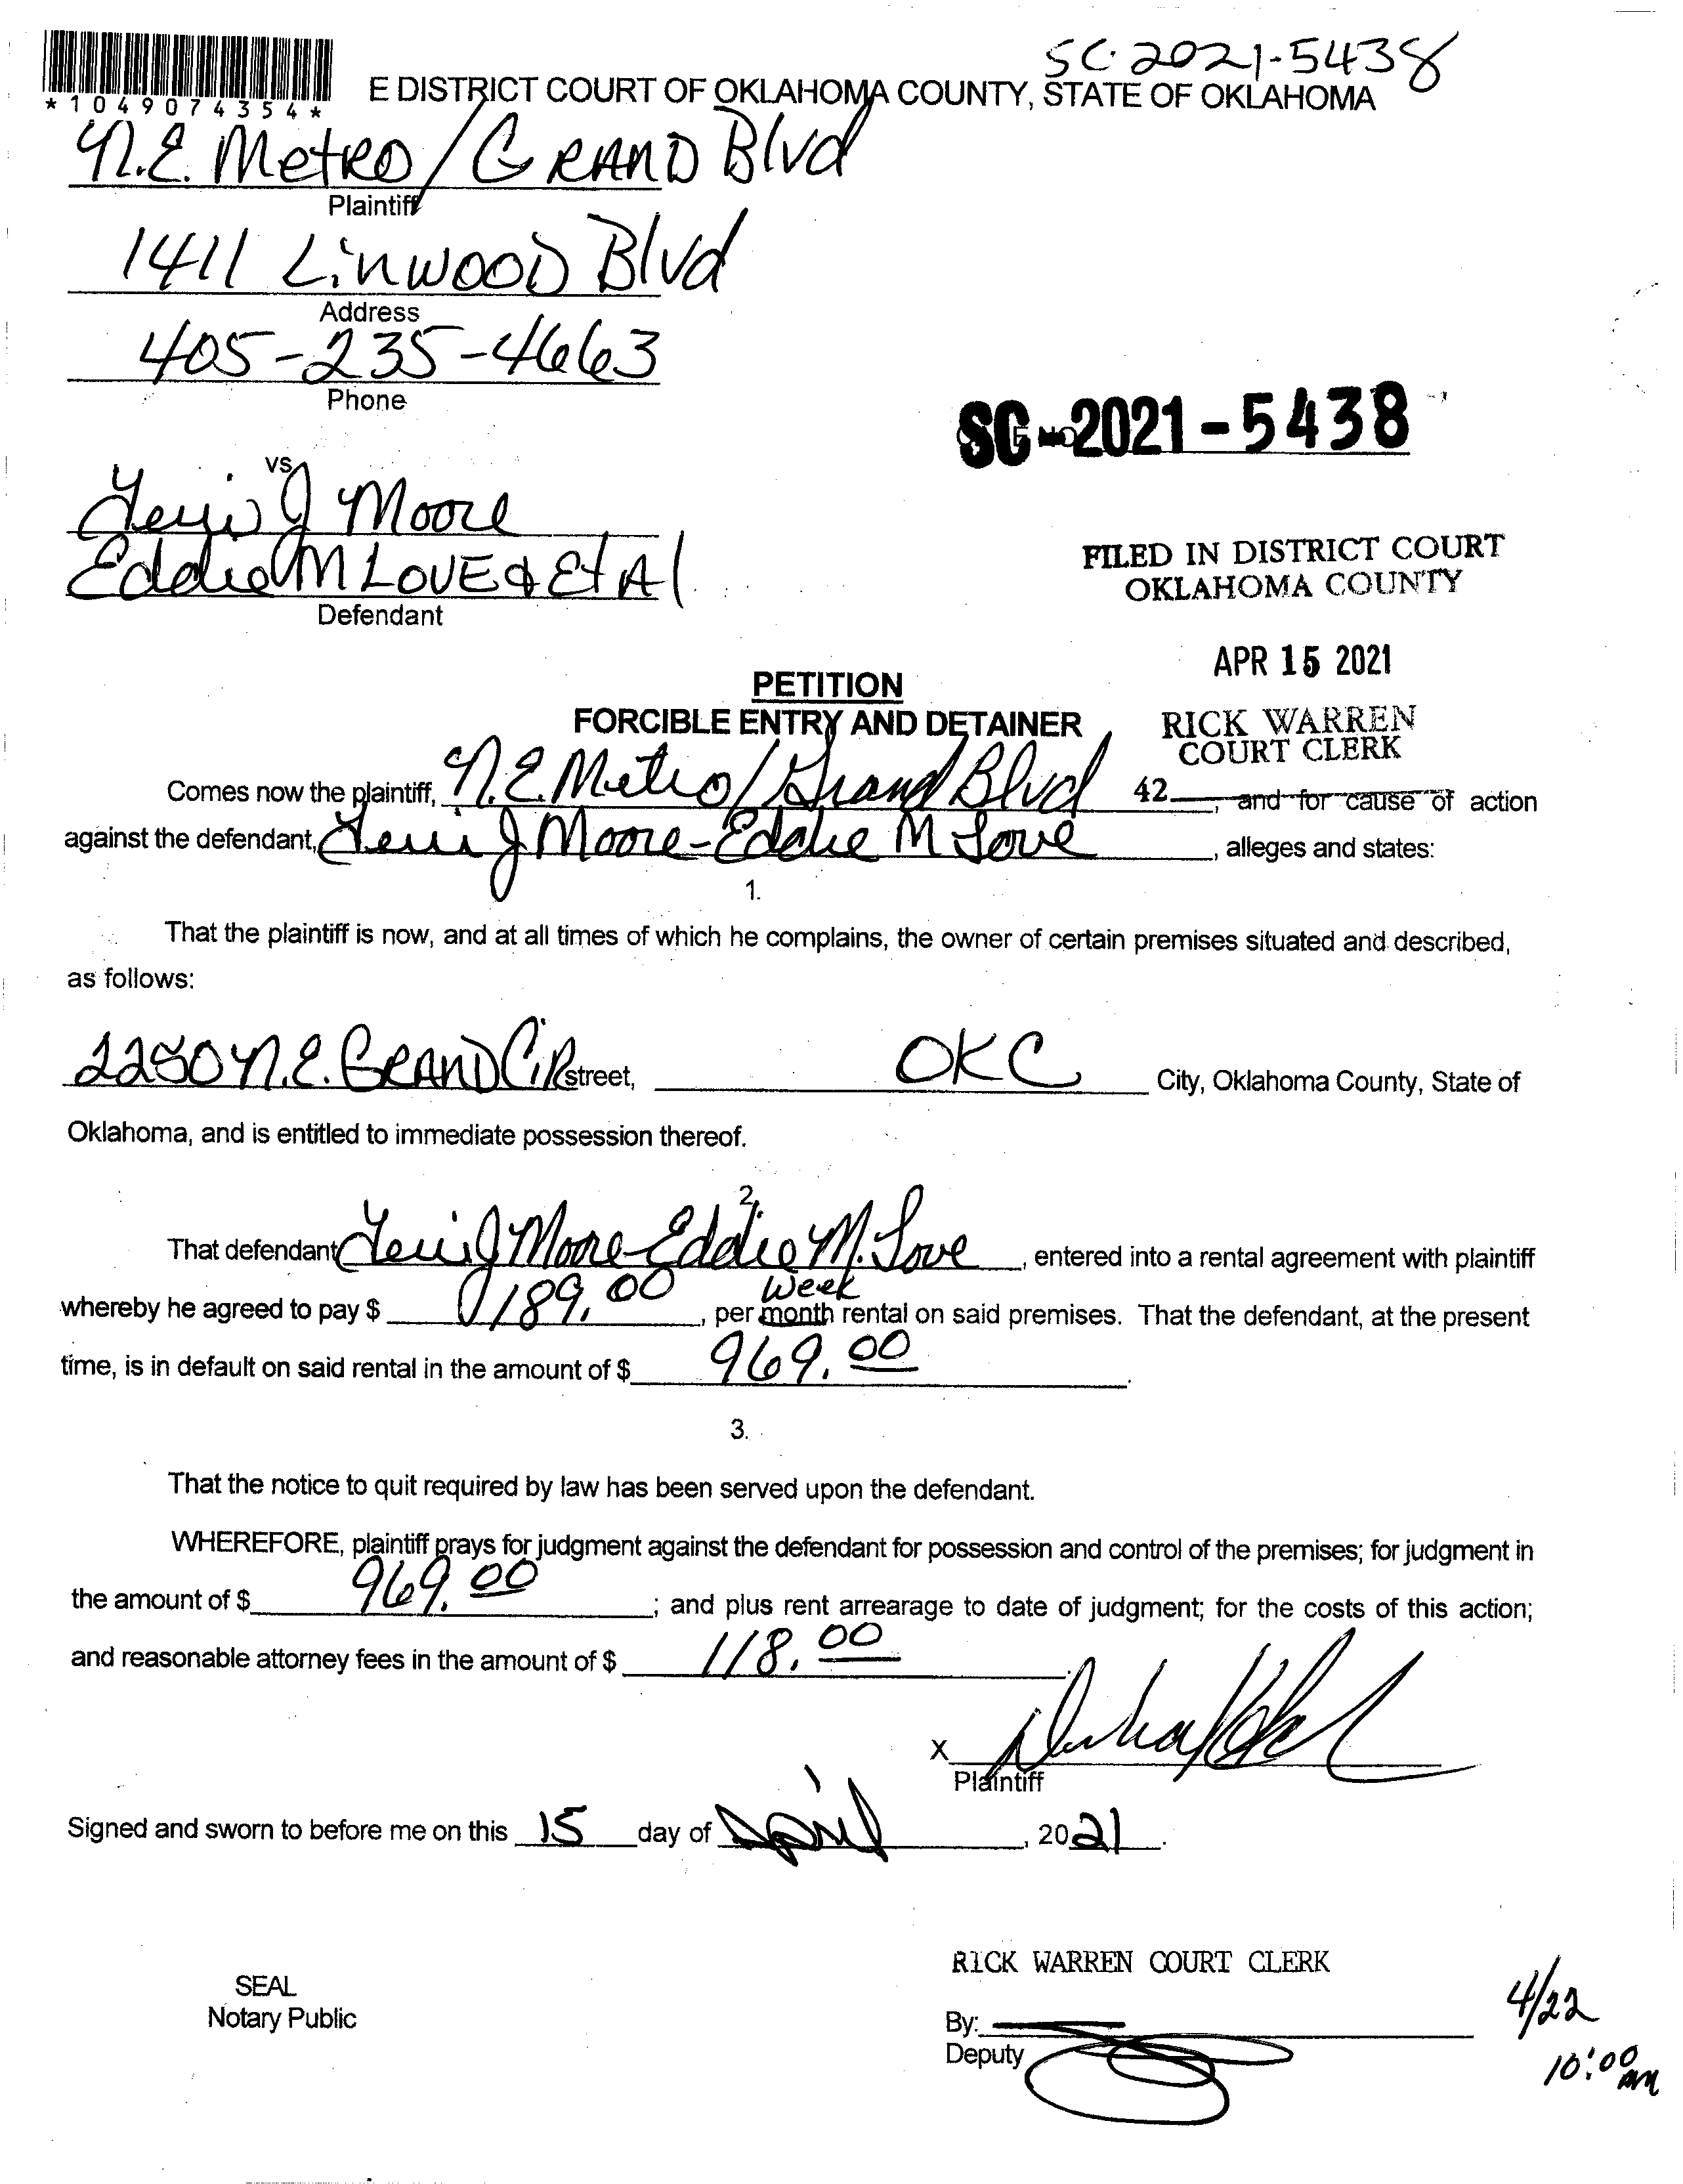 SC-2021-5438
*1049074354*
E DISTRICT COURT OF OKLAHOMA COUNTY, STATE OF OKLAHOMA
N.E. Metro/GRAND Blvd
Plaintiff
1411 LinwooD Blvd
Address
405-235-4663
Phone
SC-2021-5438
vs
Terri J Moore
Eddie M LOVE & Et Al
Defendant
FILED IN DISTRICT COURT
OKLAHOMA COUNTY
APR 15 2021
RICK WARREN
COURT CLERK
42
PETITION
FORCIBLE ENTRY AND DETAINER
Comes now the plaintiff, N.E. Metro/Grand Blvd, and for cause of action
against the defendant, Terri J Moore-Eddie M Love, alleges and states:
1.
That the plaintiff is now, and at all times of which he complains, the owner of certain premises situated and described,
as follows:
2250 N.E. GRAND CiR street, OKC City, Oklahoma County, State of
Oklahoma, and is entitled to immediate possession thereof.
2.
That defendant Terri J Moore-Eddie M. Love, entered into a rental agreement with plaintiff
Week
whereby he agreed to pay $ 189.00, per month rental on said premises. That the defendant, at the present
time, is in default on said rental in the amount of $ 969.00.
3.
That the notice to quit required by law has been served upon the defendant.
WHEREFORE, plaintiff prays for judgment against the defendant for possession and control of the premises; for judgment in
the amount of $ 969.00; and plus rent arrearage to date of judgment; for the costs of this action;
and reasonable attorney fees in the amount of $ 118.00.
X
Plaintiff
Signed and sworn to before me on this 15 day of April, 2021.
RICK WARREN COURT CLERK
SEAL
Notary Public
By:
Deputy
4/22
10:00 AM